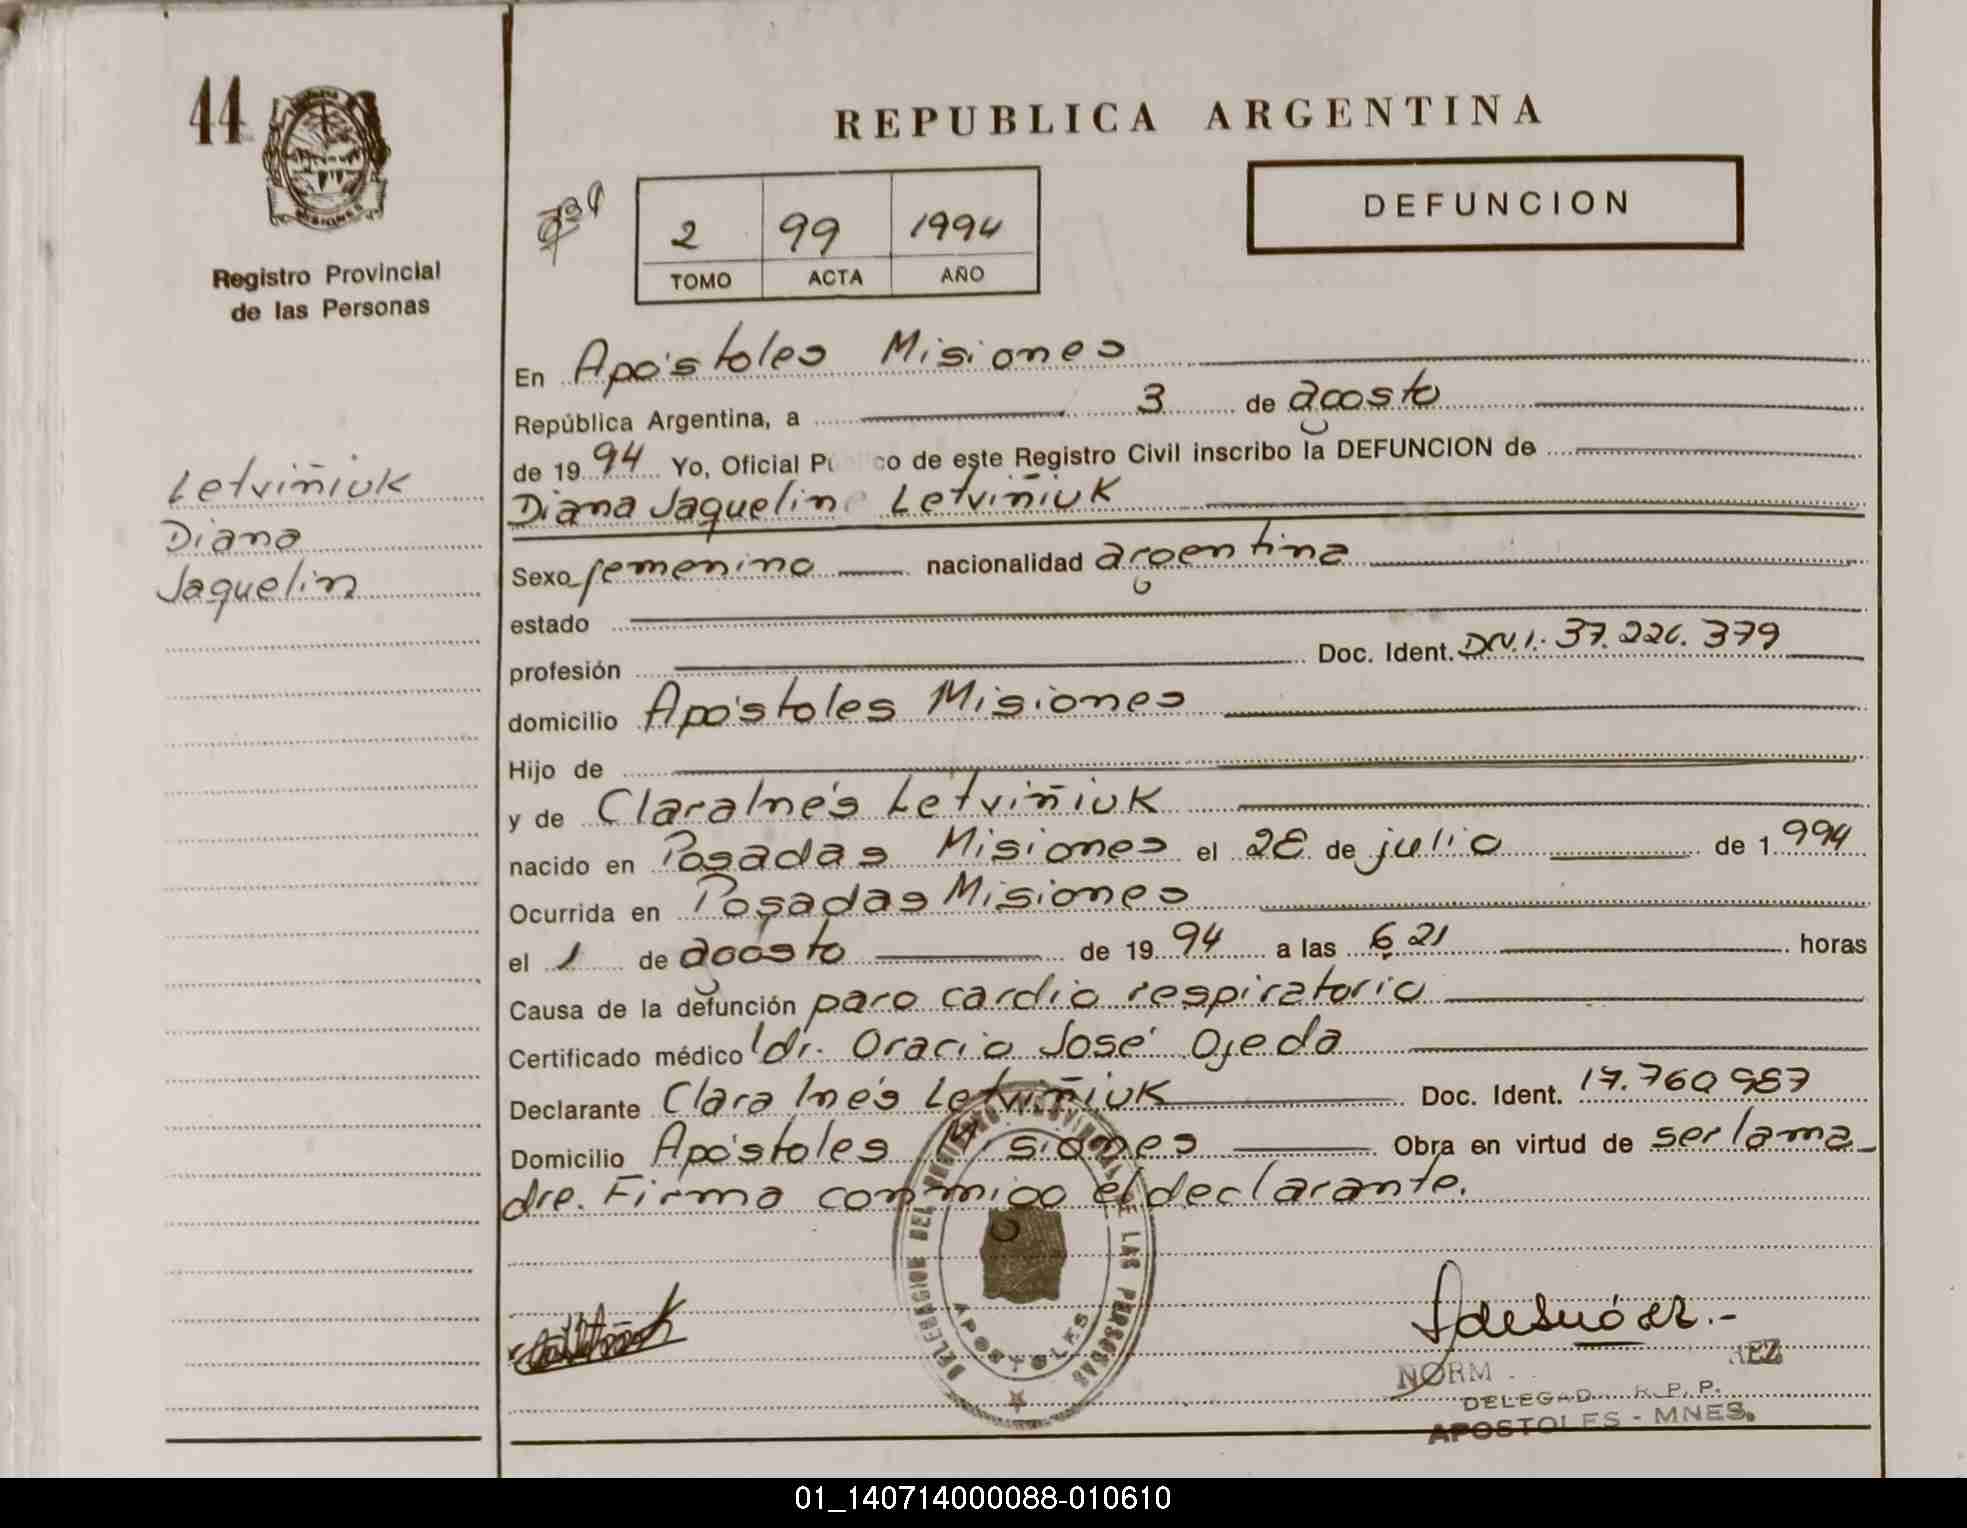 44
Registro Provincial
de las Personas
Letviñiuk
Diana
Jaquelin
REPUBLICA ARGENTINA
DEFUNCION
2 99 1994
TOMO ACTA AÑO
En Apóstoles Misiones
República Argentina, a 3 de agosto
de 1994 Yo, Oficial P co de este Registro Civil inscribo la DEFUNCION de
Diana Jaqueline Letviñiuk
Sexo femenino nacionalidad argentina
estado
profesión Doc. Ident. D.N.I. 37.226.379
domicilio Apóstoles Misiones
Hijo de
y de Clara Inés Letviñiuk
nacido en Posadas Misiones el 28 de julio de 1994
Ocurrida en Posadas Misiones
el 1 de agosto de 1994 a las 6,21 horas
Causa de la defunción paro cardio respiratorio
Certificado médico dr. Oracio José Ojeda
Declarante Clara Inés Letviñiuk Doc. Ident. 17.760.987
Domicilio Apóstoles Misiones Obra en virtud de ser la ma
dre. Firma conmigo el declarante.
DELEGACION DEL REGISTRO PROVINCIAL DE LAS PERSONAS
APOSTOLES
NORM EZ
DELEGAD R.P.P.
APOSTOLES - MNES.
01_140714000088-010610